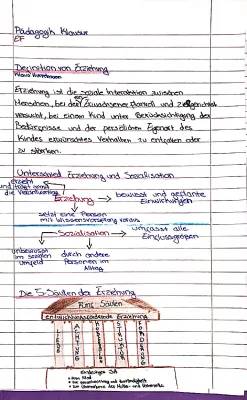 Pädagogik Klausur
EF
Definition von Erziehung
Klaus Hurrelmann
Erziehung ist die soziale Interaktion zwischen
Menschen, bei der ein Erwachsener planvoll und zielgerichtet
versucht, bei einem Kind unter Berücksichtigung der
Bedürfnisse und der persönlichen Eigenart des
Kindes erwünschtes Verhalten zu entfalten oder
zu stärken.
Unterschied Erziehung und Sozialisation
erzieht
und trägt somit
die Verantwortung
Erziehung
bewusst und geplante
Einwirkungen
setzt eine Person
mit Wissensvorsprung voraus
Sozialisation
umfasst alle
Einflussgrößen
unbewusst
im sozialen
Umfeld
durch andere
Personen im
Alltag
Die 5 Säulen der Erziehung
Fünf Säulen
Entwicklungsfördernde Erziehung
LIEBE
ACHTUNG
KOOPERATION
STRUKTUR
FÖRDERUNG